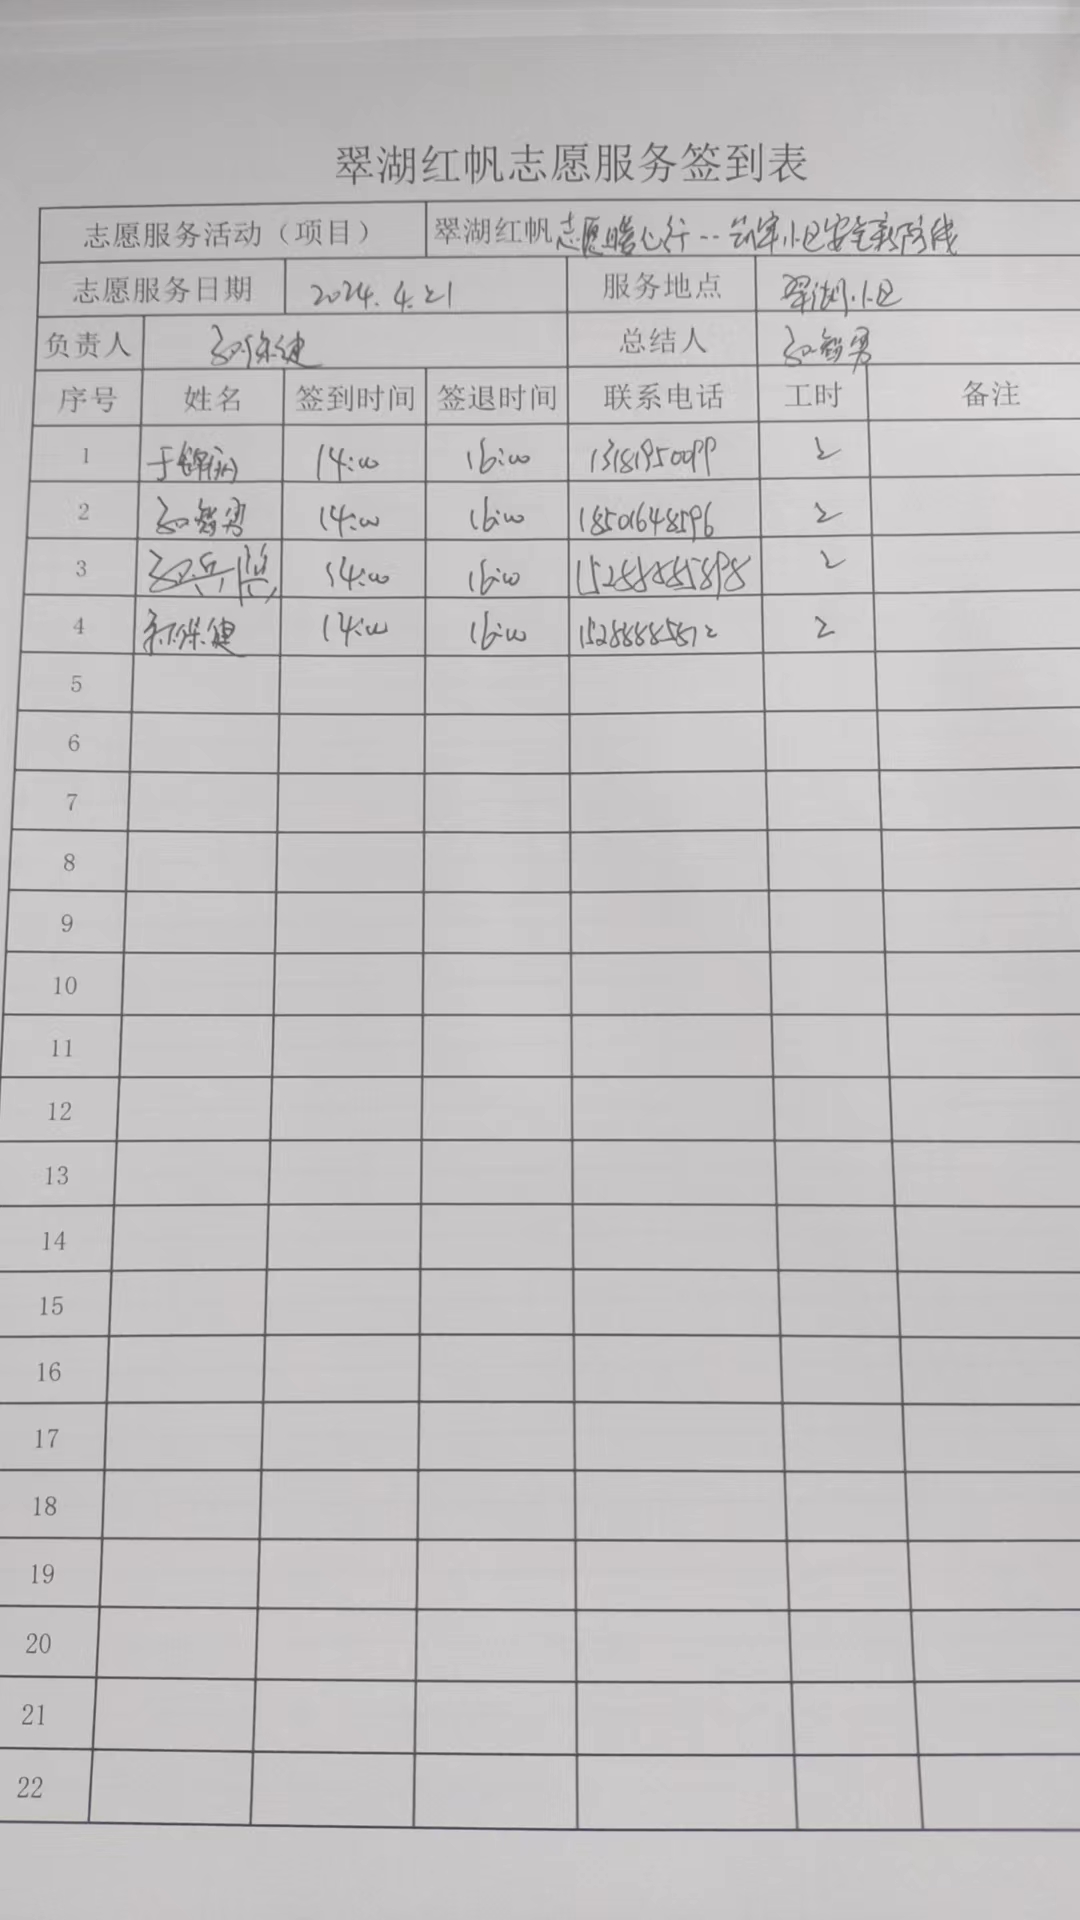 翠湖红帆志愿服务签到表
志愿服务活动（项目） 翠湖红帆志愿暖心行--筑牢小区安全新防线
志愿服务日期 2024.4.21 服务地点 翠湖小区
负责人 保健 总结人 智勇
序号 姓名 签到时间 签退时间 联系电话 工时 备注
1 于锦 14:00 16:00 13181950099 2
2 智勇 14:00 16:00 18501648596 2
3 兵 14:00 16:00 15288885898 2
4 保健 14:00 16:00 15288885872 2
5
6
7
8
9
10
11
12
13
14
15
16
17
18
19
20
21
22